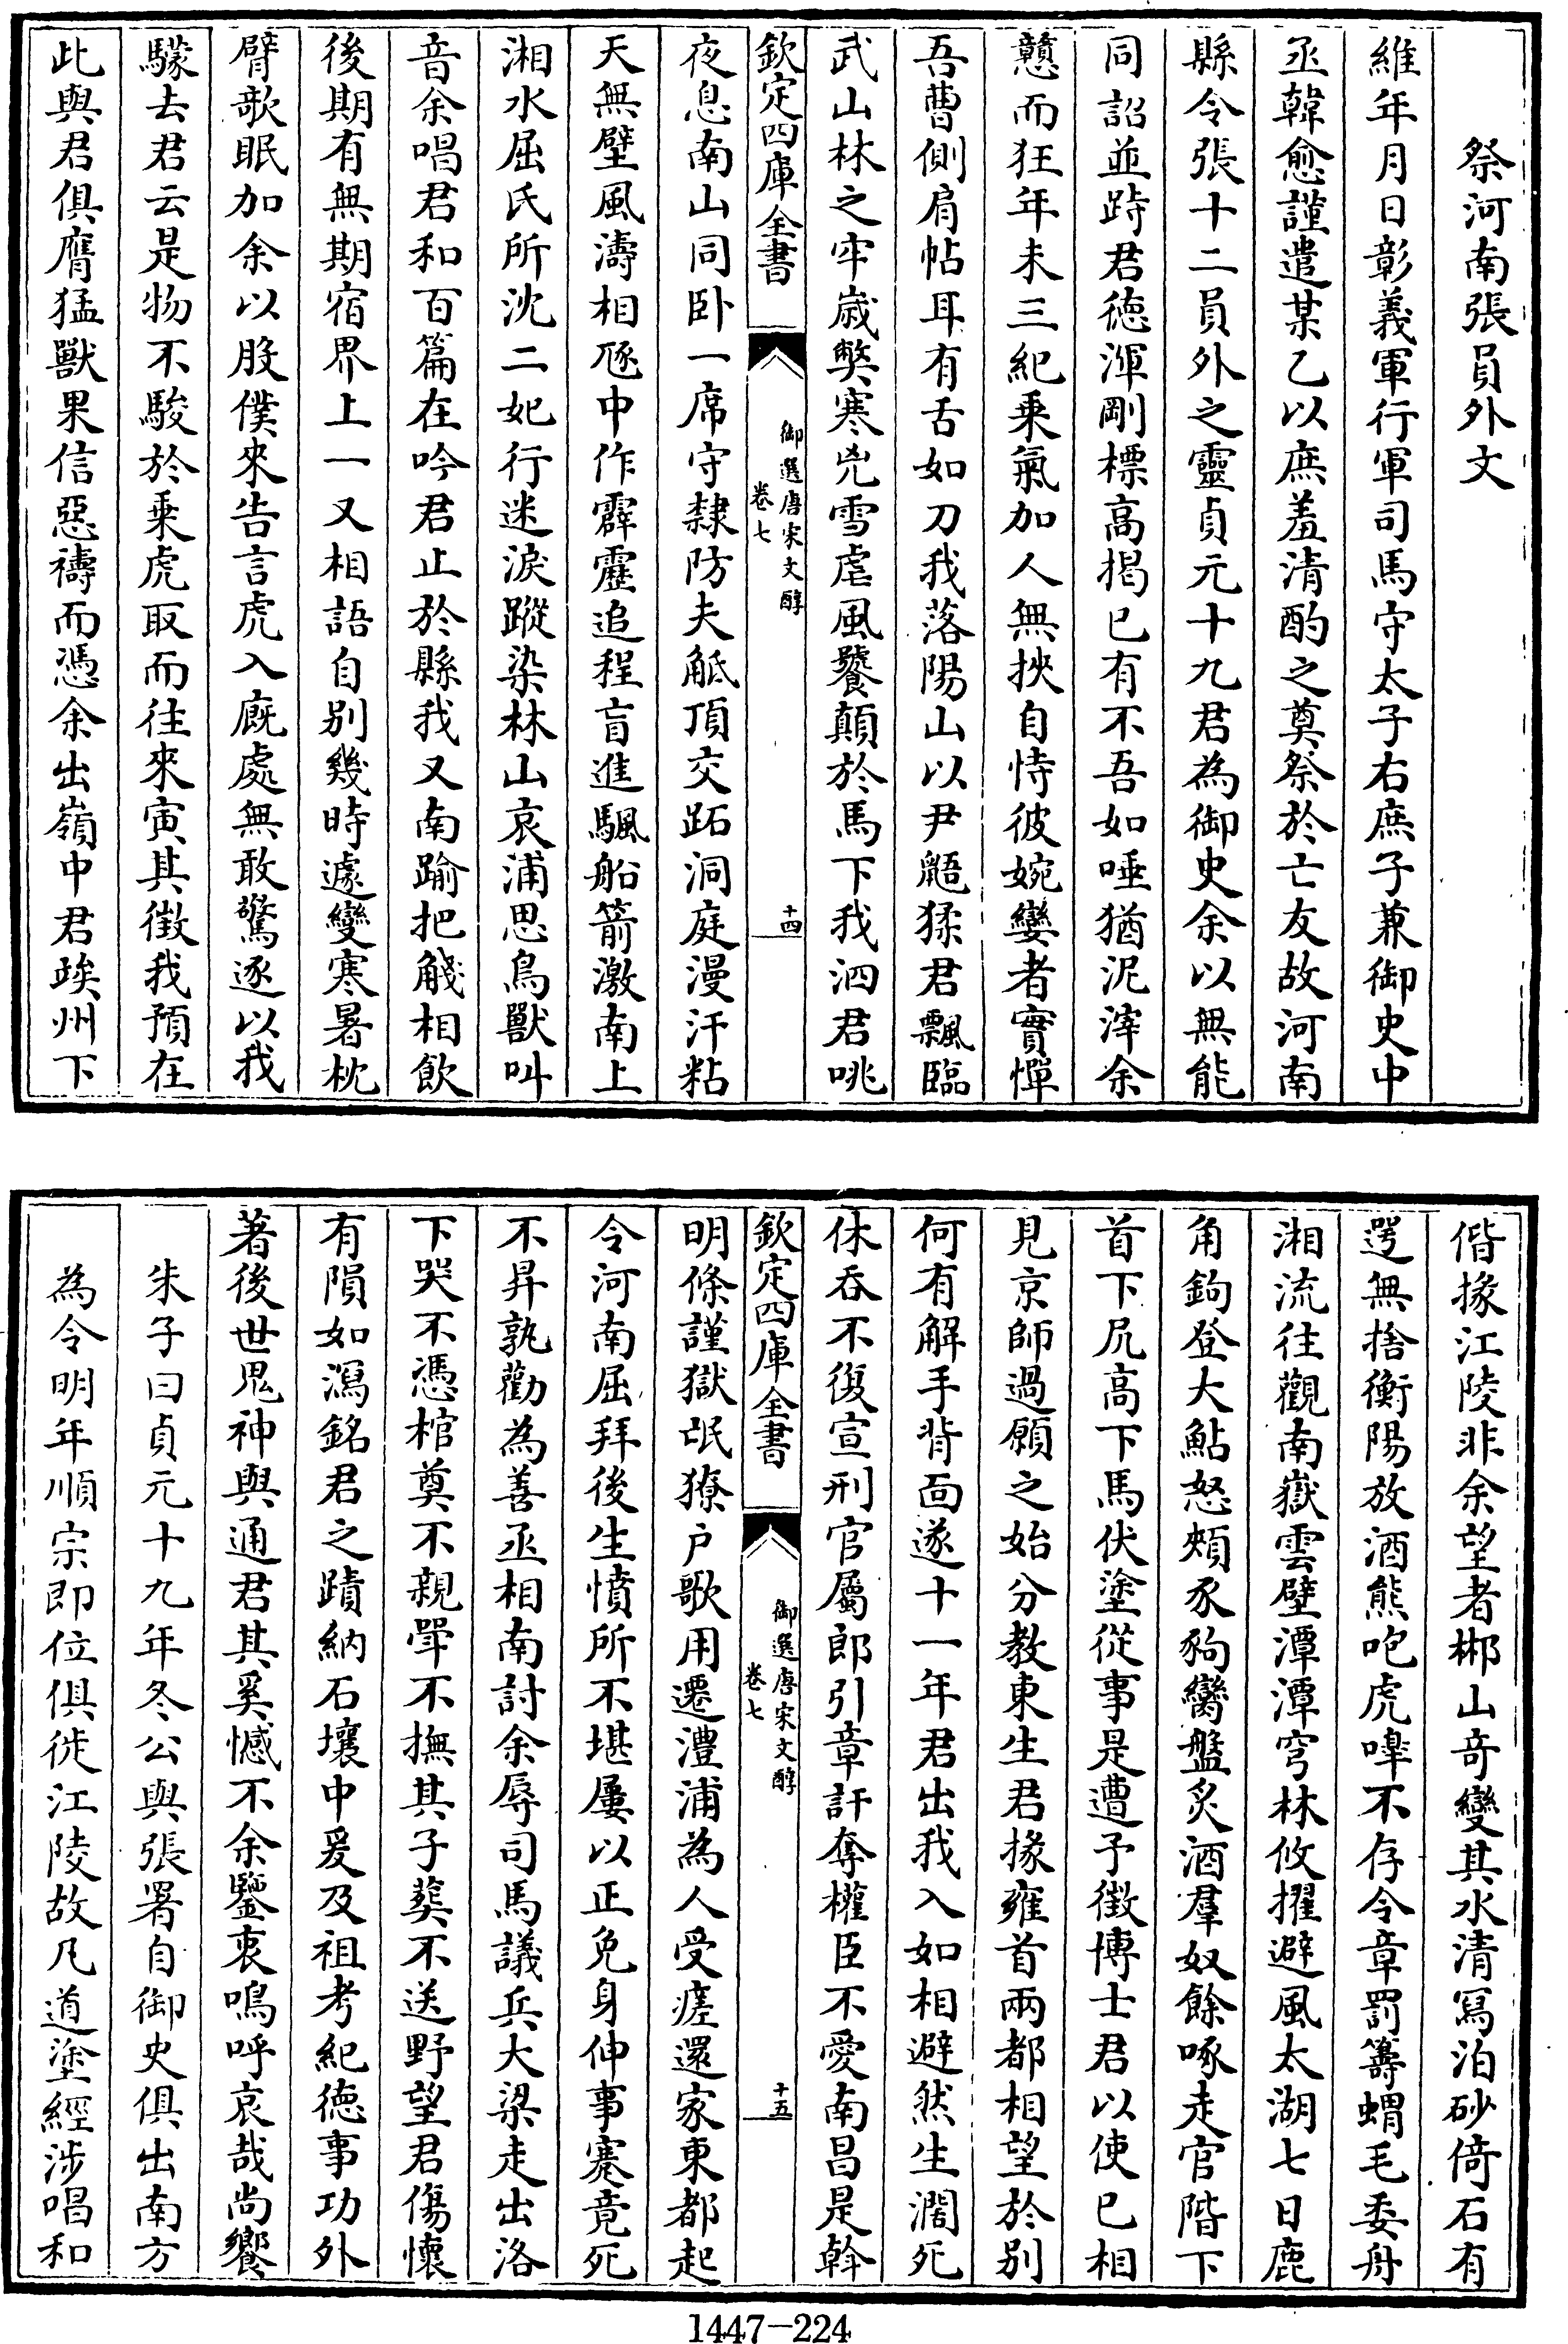 祭河南張員外文
維年月日彰義軍行軍司馬守太子右庶子兼御史中
丞韓愈謹遣某乙以庶羞清酌之奠祭於亡友故河南
縣令張十二員外之靈貞元十九君為御史余以無能
同詔並跱君徳渾剛標高揭已有不吾如唾猶泥滓余
戇而狂年未三紀乗氣加人無挾自恃彼婉孌者實憚
吾曹側肩帖耳有舌如刀我落陽山以尹鼯猱君飄臨
武山林之牢歳弊寒兇雪虐風饕顛於馬下我泗君咷
欽定四庫全書
御選唐宋文醇
卷七
十四
夜息南山同卧一席守隸防夫觝頂交跖洞庭漫汗粘
天無壁風濤相豗中作霹靂追程盲進颿船箭激南上
湘水屈氏所沈二妃行迷淚蹤染林山哀浦思鳥獸叫
音余唱君和百篇在吟君止於縣我又南踰把觴相飲
後期有無期宿界上一又相語自别幾時遽變寒暑枕
臂欹眠加余以股僕來告言虎入廐處無敢驚逐以我
驂去君云是物不駿於乗虎取而往來寅其徴我預在
此與君俱膺猛獸果信惡禱而憑余出嶺中君竢州下
偕掾江陵非余望者郴山奇變其水清冩泊砂倚石有
遻無捨衡陽放酒熊咆虎嘷不存令章罰籌蝟毛委舟
湘流往觀南嶽雲壁潭潭穹林攸擢避風太湖七日鹿
角鉤登大鮎怒頰豕豞臠盤炙酒羣奴餘啄走官階下
首下尻高下馬伏塗從事是遭予徴博士君以使已相
見京師過願之始分教東生君掾雍首兩都相望於别
何有解手背面遂十一年君出我入如相避然生濶死
休吞不復宣刑官屬郎引章訐奪權臣不愛南昌是斡
欽定四庫全書
御選唐宋文醇
卷七
十五
明條謹獄氓獠户歌用遷澧浦為人受瘥還家東都起
令河南屈拜後生憤所不堪屢以正免身伸事蹇竟死
不昇孰勸為善丞相南討余辱司馬議兵大梁走出洛
下哭不憑棺奠不親斝不撫其子葬不送野望君傷懷
有隕如瀉銘君之蹟納石壤中爰及祖考紀德事功外
著後世鬼神與通君其奚憾不余鑒衷嗚呼哀哉尚饗
朱子曰貞元十九年冬公與張署自御史俱出南方
為令明年順宗即位俱徙江陵故凡道塗經涉唱和
1447-224